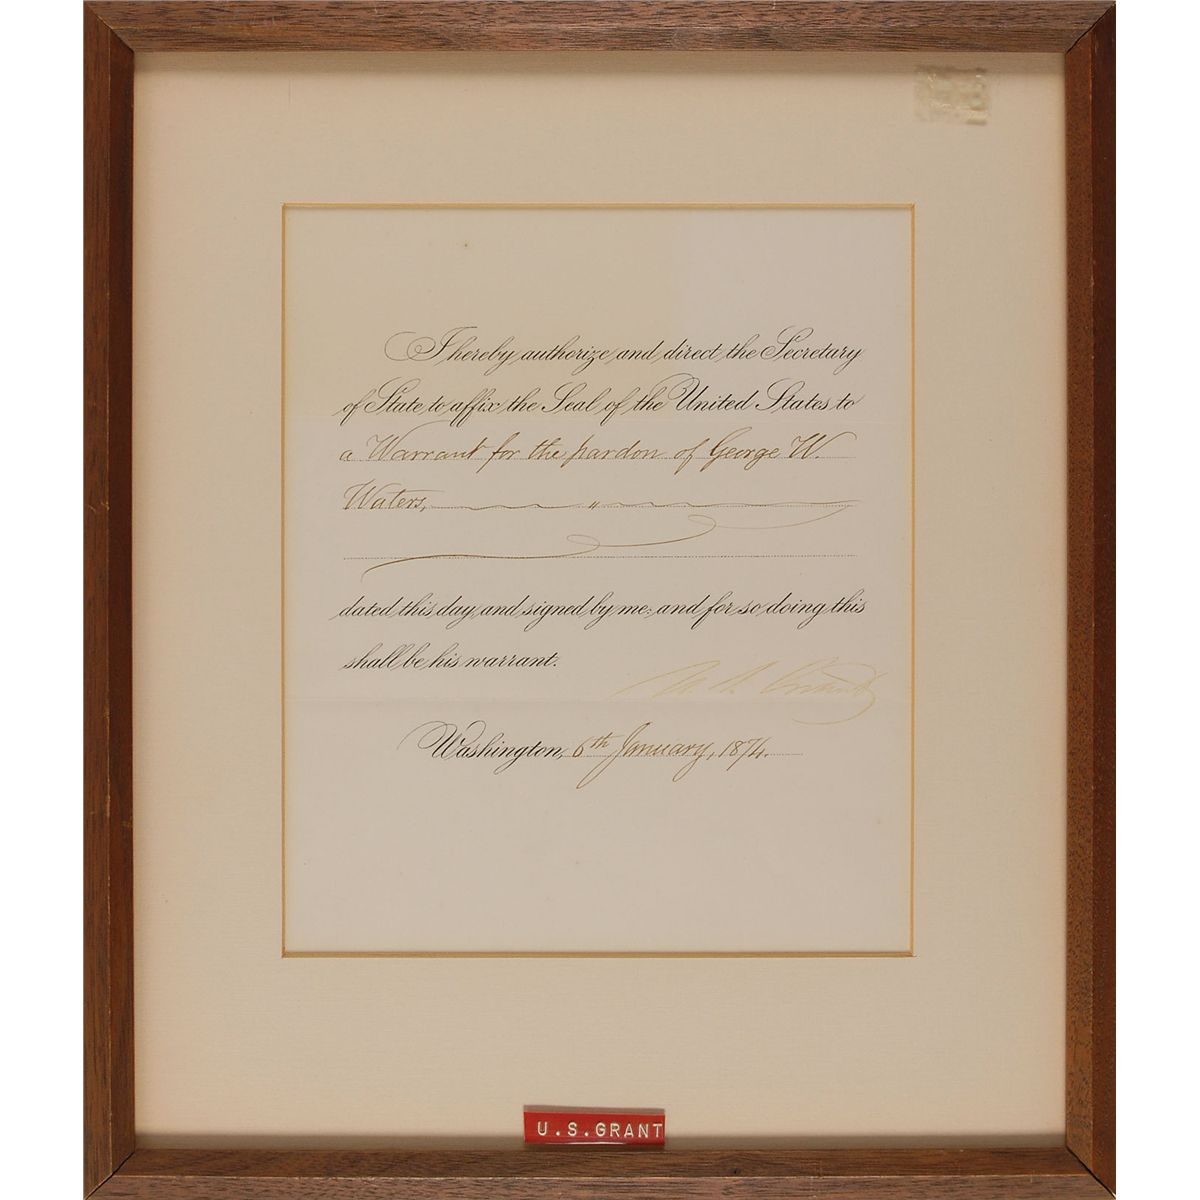 I hereby authorize and direct the Secretary
of State to affix the Seal of the United States to
a Warrant for the pardon of George W.
Waters, "
dated this day, and signed by me: and for so doing this
shall be his warrant.
U. S. Grant
Washington, 6th January, 1874.
U.S.GRANT